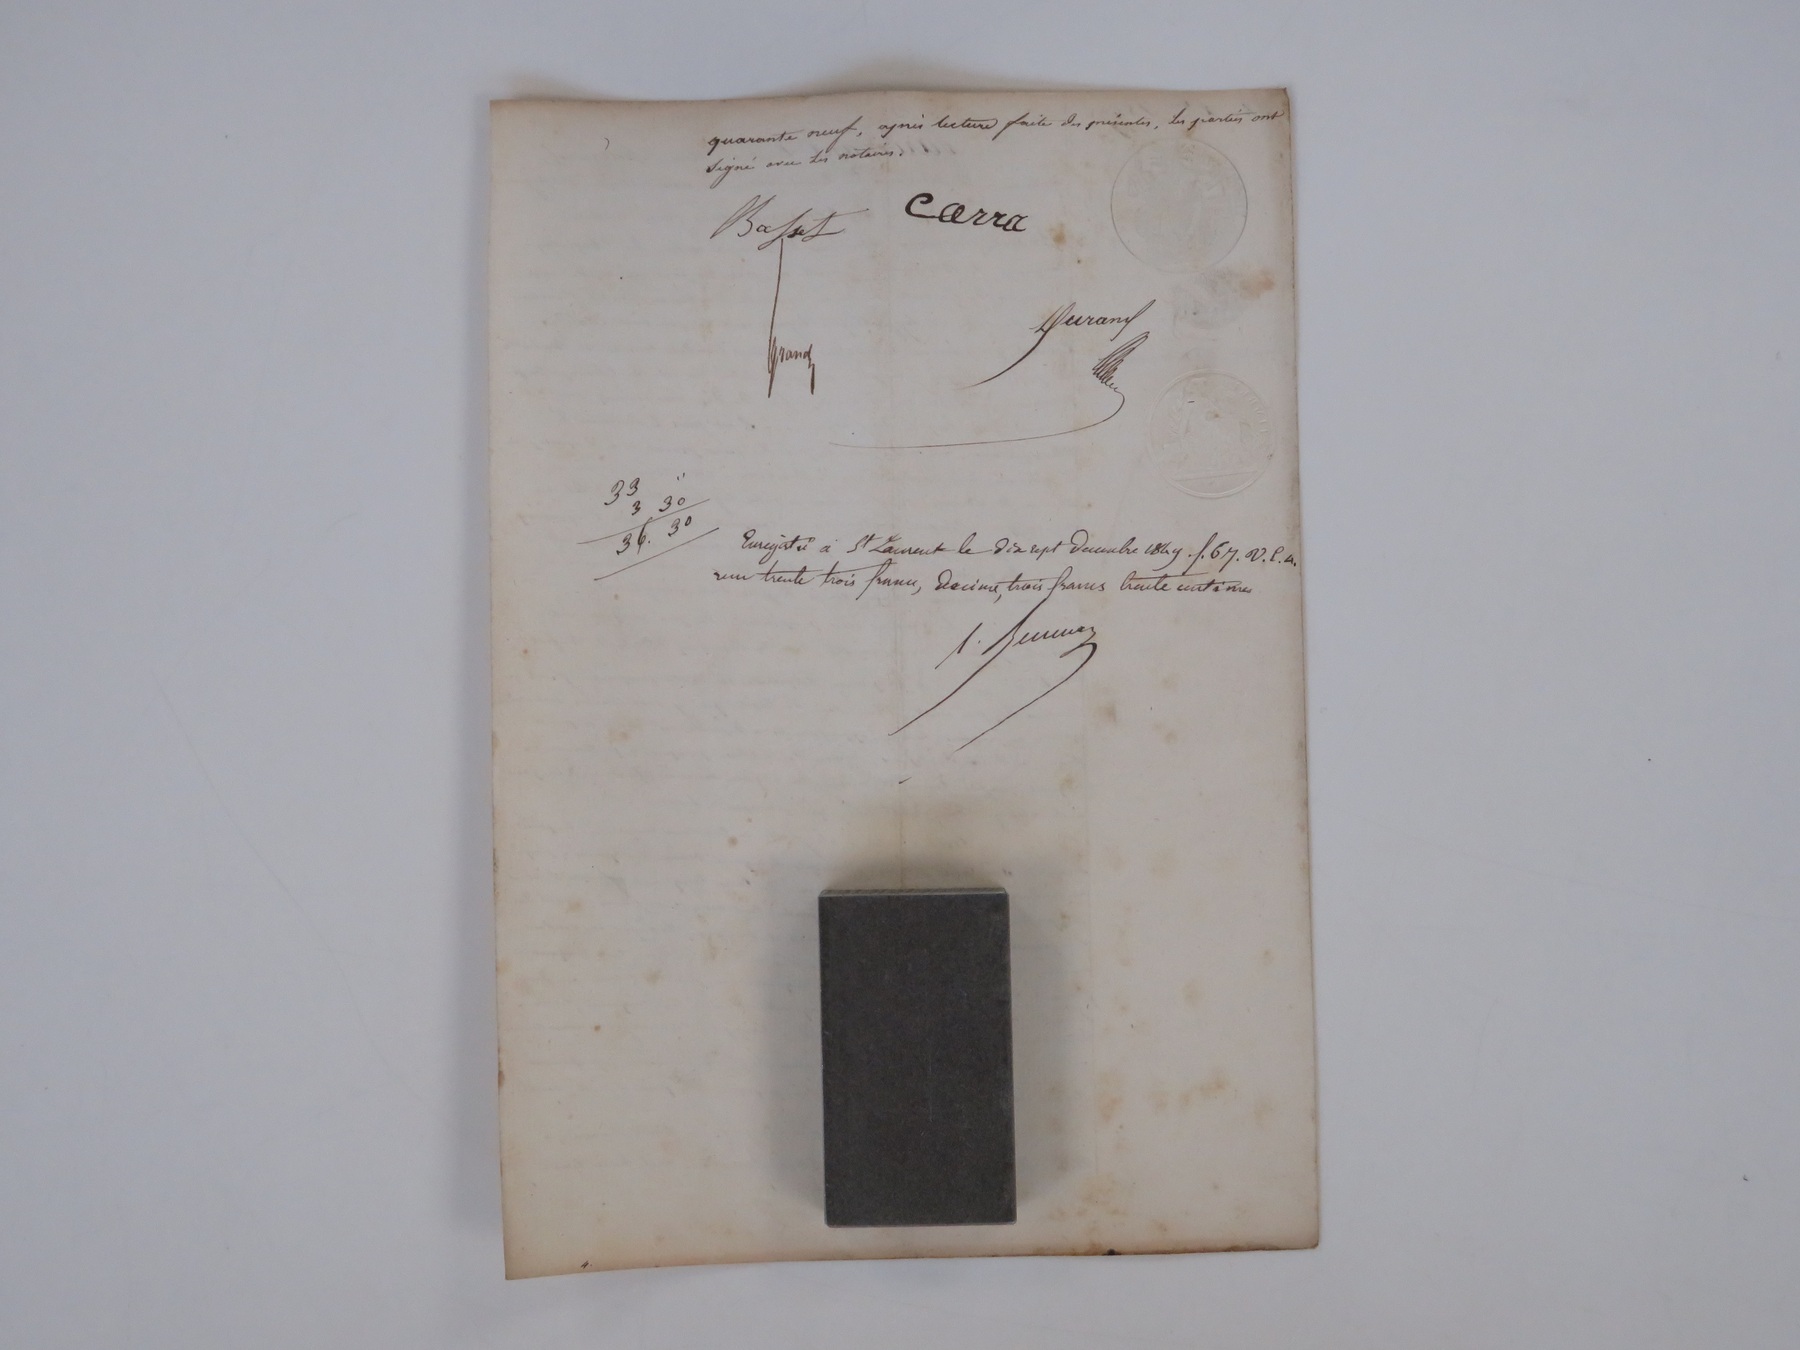 quarante neuf, après lecture faite des présentes, les parties ont
signé avec les notaires.
Basset
Carra
Durand
Grand
33 "
3 30
36. 30
Enregistré à St Laurent le dix sept Decembre 1849. f. 67. V. C. 4.
reçu trente trois francs, decime, trois francs trente centimes